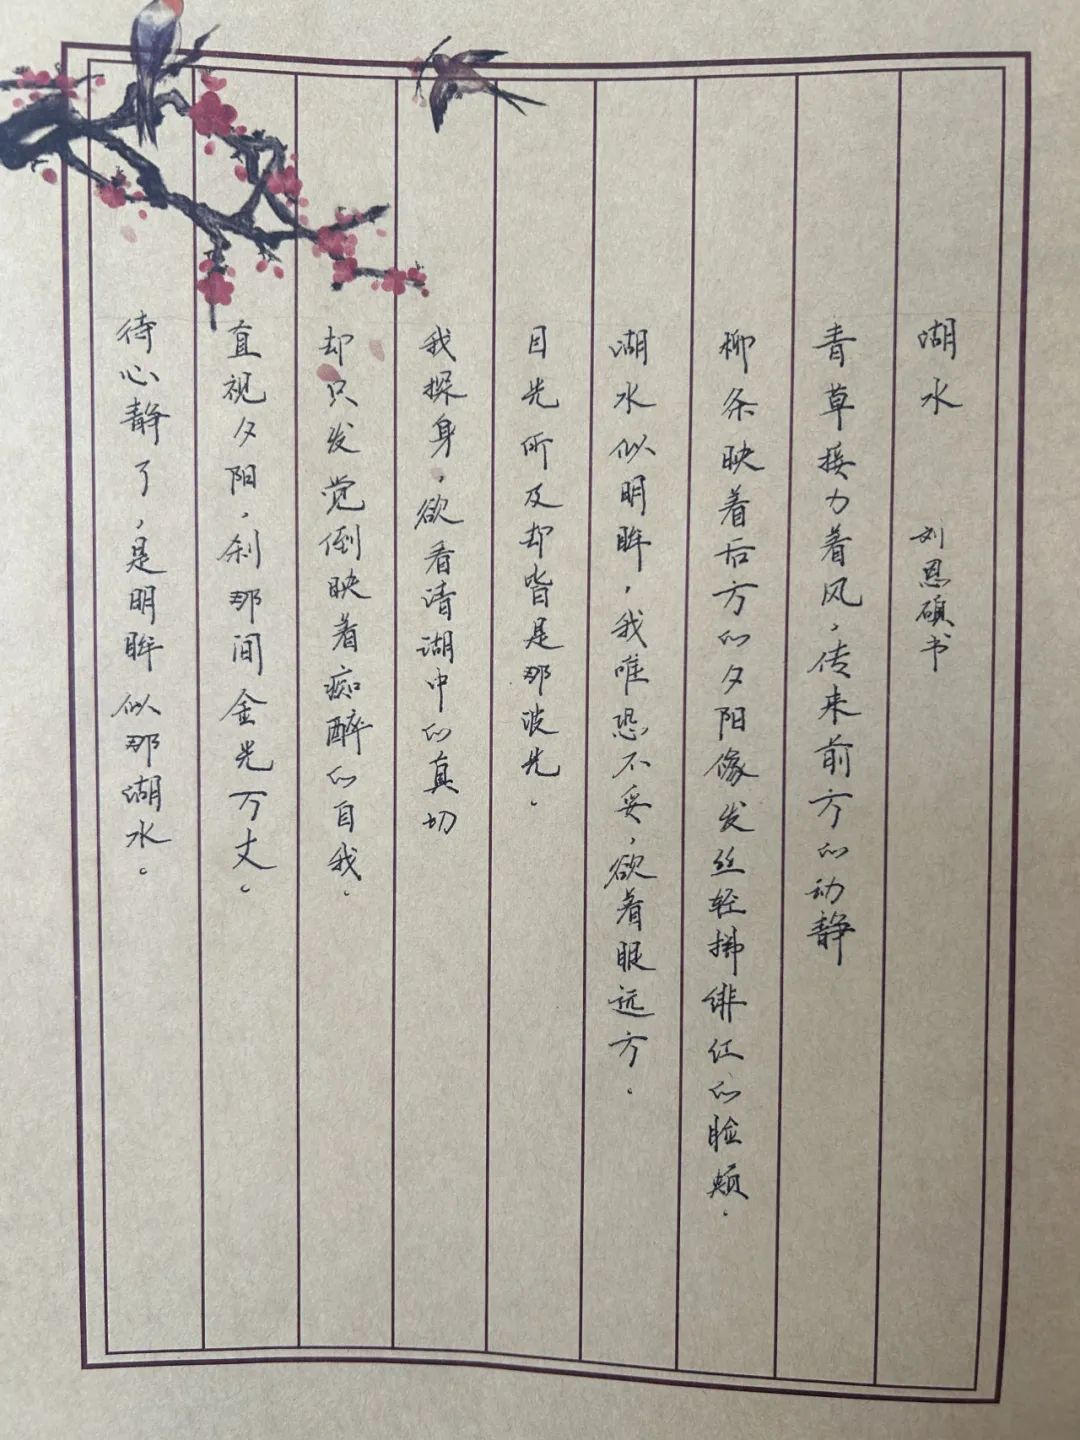 湖水 刘恩硕书
青草接力着风，传来前方的动静
柳条映着后方的夕阳像发丝轻拂绯红的脸颊。
湖水似明眸，我唯恐不妥，欲着眼远方。
目光所及却皆是那波光。
我探身，欲看清湖中的真切
却只发觉倒映着痴醉的自我。
直视夕阳，刹那间金光万丈。
待心静了，是明眸似那湖水。